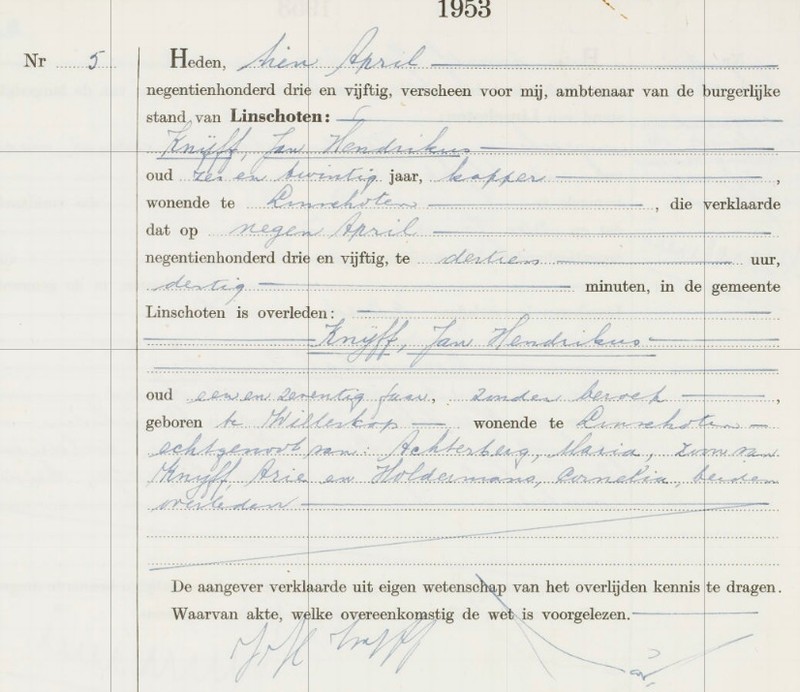 1953
Nr 5
Heden, tien April
negentienhonderd drie en vijftig, verscheen voor mij, ambtenaar van de burgerlijke
stand van Linschoten:
Knijff, Jan Hendrikus
oud zes en twintig jaar, kapper ,
wonende te Linschoten , die verklaarde
dat op negen April
negentienhonderd drie en vijftig, te dertien uur,
dertig minuten, in de gemeente
Linschoten is overleden:
Knijff, Jan Hendrikus
oud een en zeventig jaar, zonder beroep ,
geboren te Willeskop wonende te Linschoten
echtgenoot van: Achterberg, Maria, zoon van
Knijff, Arie en Holdermans, Cornelia, beiden
overleden
De aangever verklaarde uit eigen wetenschap van het overlijden kennis te dragen.
Waarvan akte, welke overeenkomstig de wet is voorgelezen.